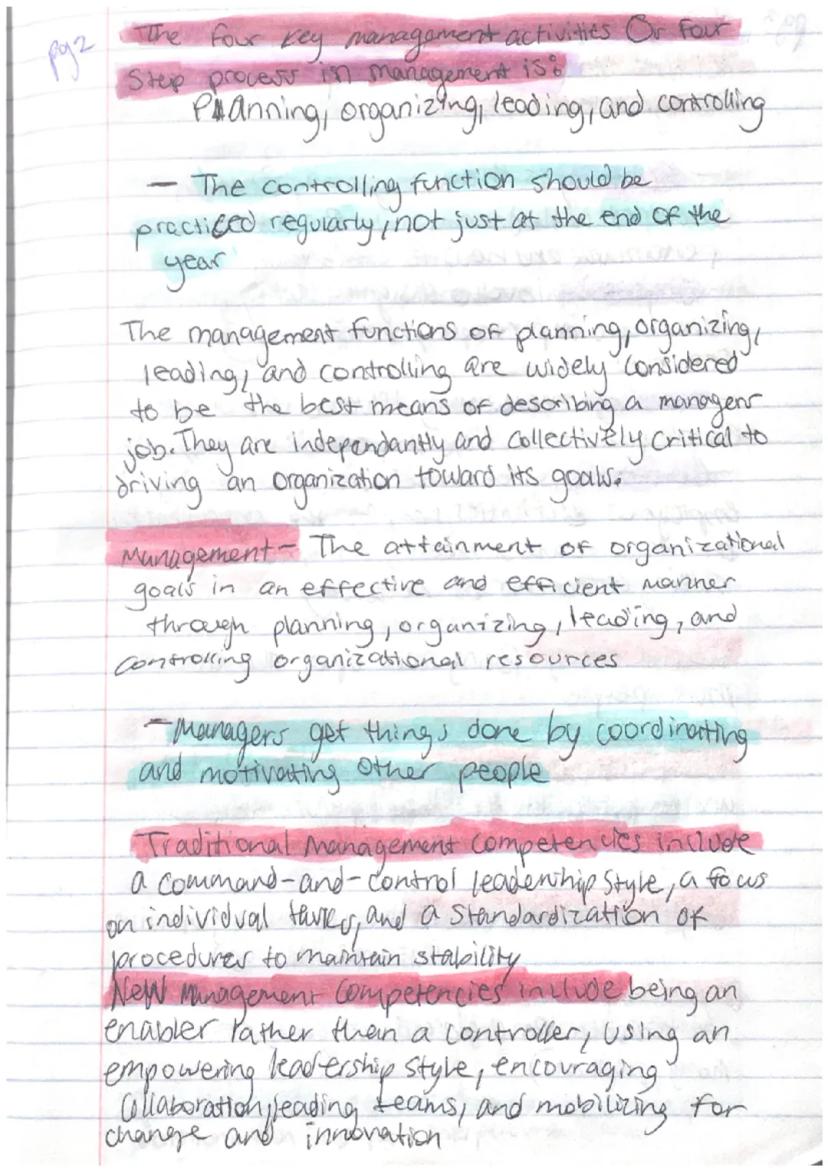 pg2
The four key management activities Or four
Step process in management is:
Planning, organizing, leading, and controlling
— The controlling function should be
practiced regularly, not just at the end of the
year
The management functions of planning, organizing,
leading, and controlling are widely considered
to be the best means of describing a managers
job. They are independantly and collectively critical to
driving an organization toward its goals.
Management - The attainment of organizational
goals in an effective and efficient manner
through planning, organizing, leading, and
controlling organizational resources
- Managers get things done by coordinating
and motivating other people
Traditional Management Competencies include
a command-and-control leadership style, a focus
on individual tasks, and a standardization of
procedures to maintain stability
New Management Competencies include being an
enabler rather than a controller, using an
empowering leadership style, encouraging
Collaboration, leading teams, and mobilizing for
change and innovation